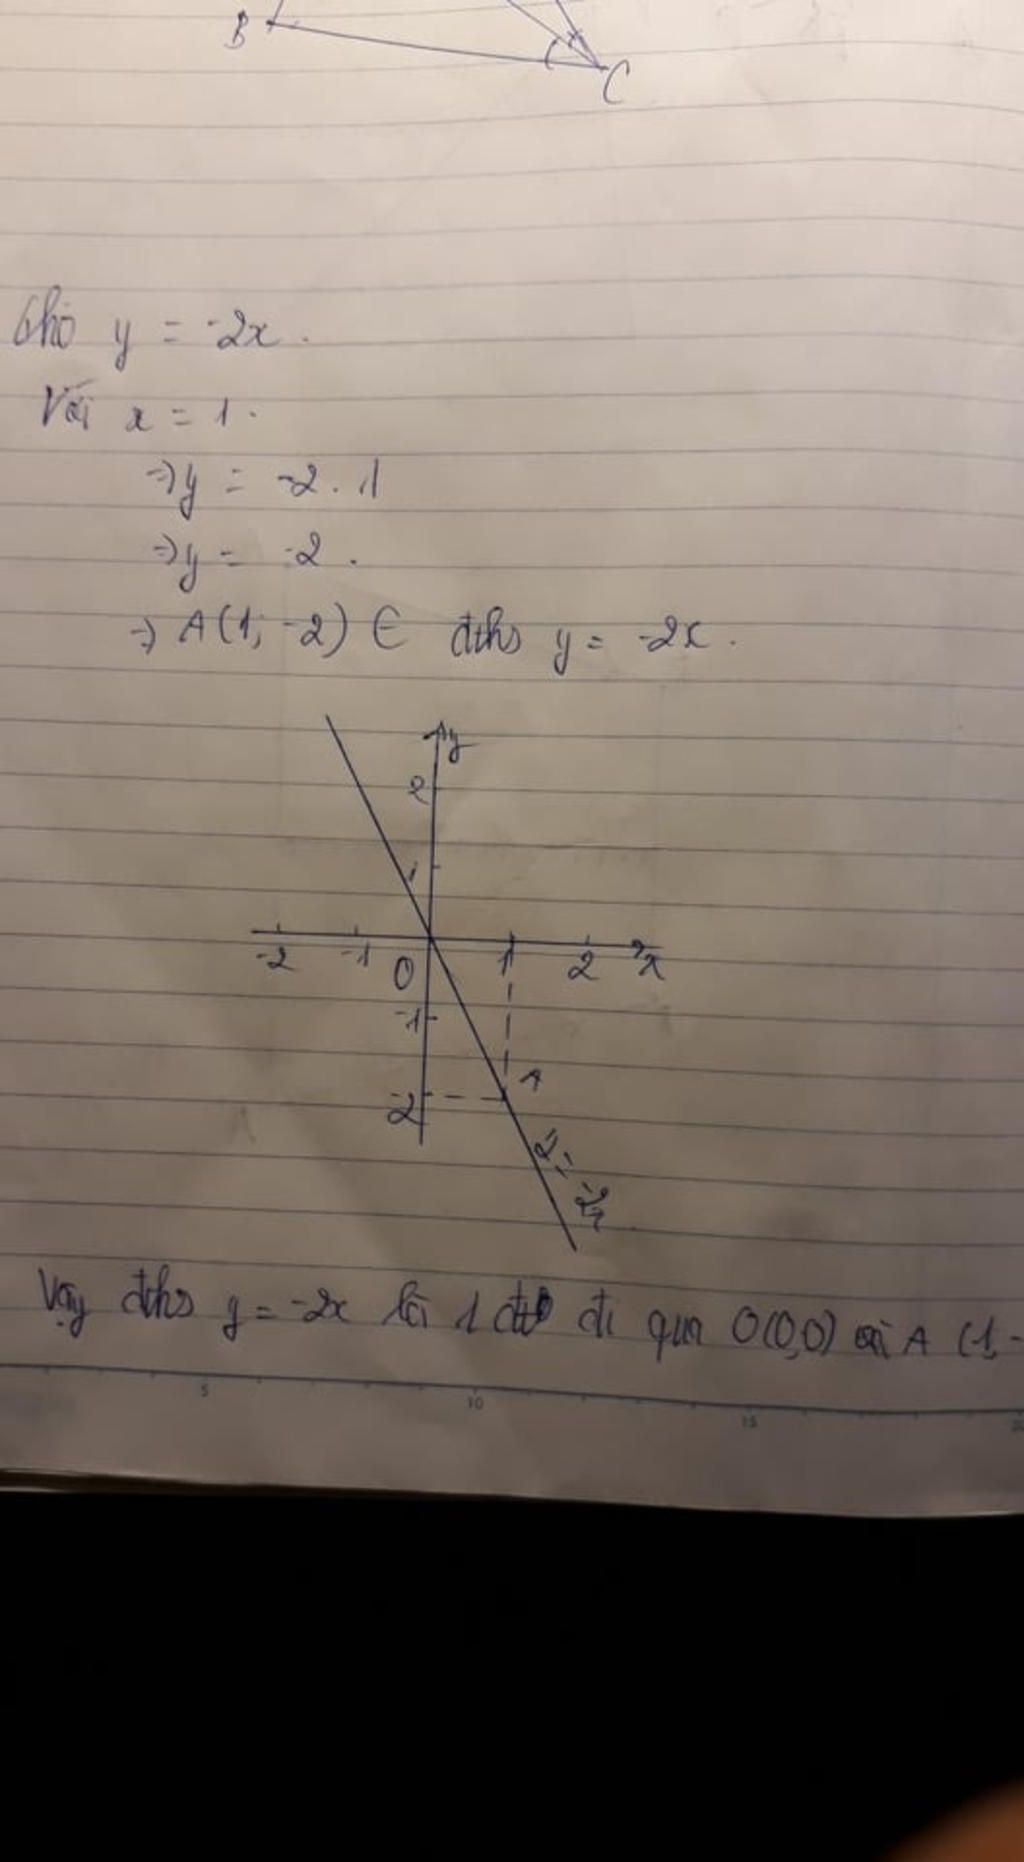 B
C
Cho y = -2x.
Với x = 1.
=> y = -2. 1
=> y = -2.
=> A(1; -2) ∈ đths y = -2x.
y
2
1
-2 -1 O 1 2 x
-1
A
-2
y = -2x
Vậy đths y = -2x là 1 đt đi qua O(0,0) và A (1, -
5 10 15 20